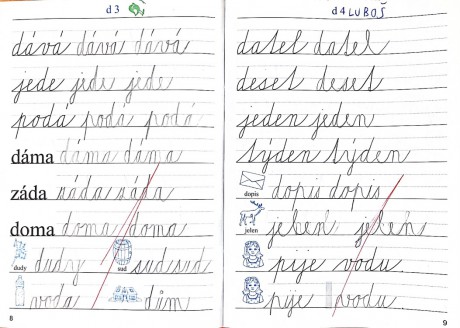 d 3
dává dává dává
jede jede jede
podá podá podá
dáma dáma dáma
záda záda záda
doma doma doma
dudy dudy sud sud sud
voda dům
8
d 4 LUBOŠ
datel datel
deset deset
jeden jeden
týden týden
dopis dopis dopis
jelen jeleň jeleň
pije vodu.
pije vodu.
9